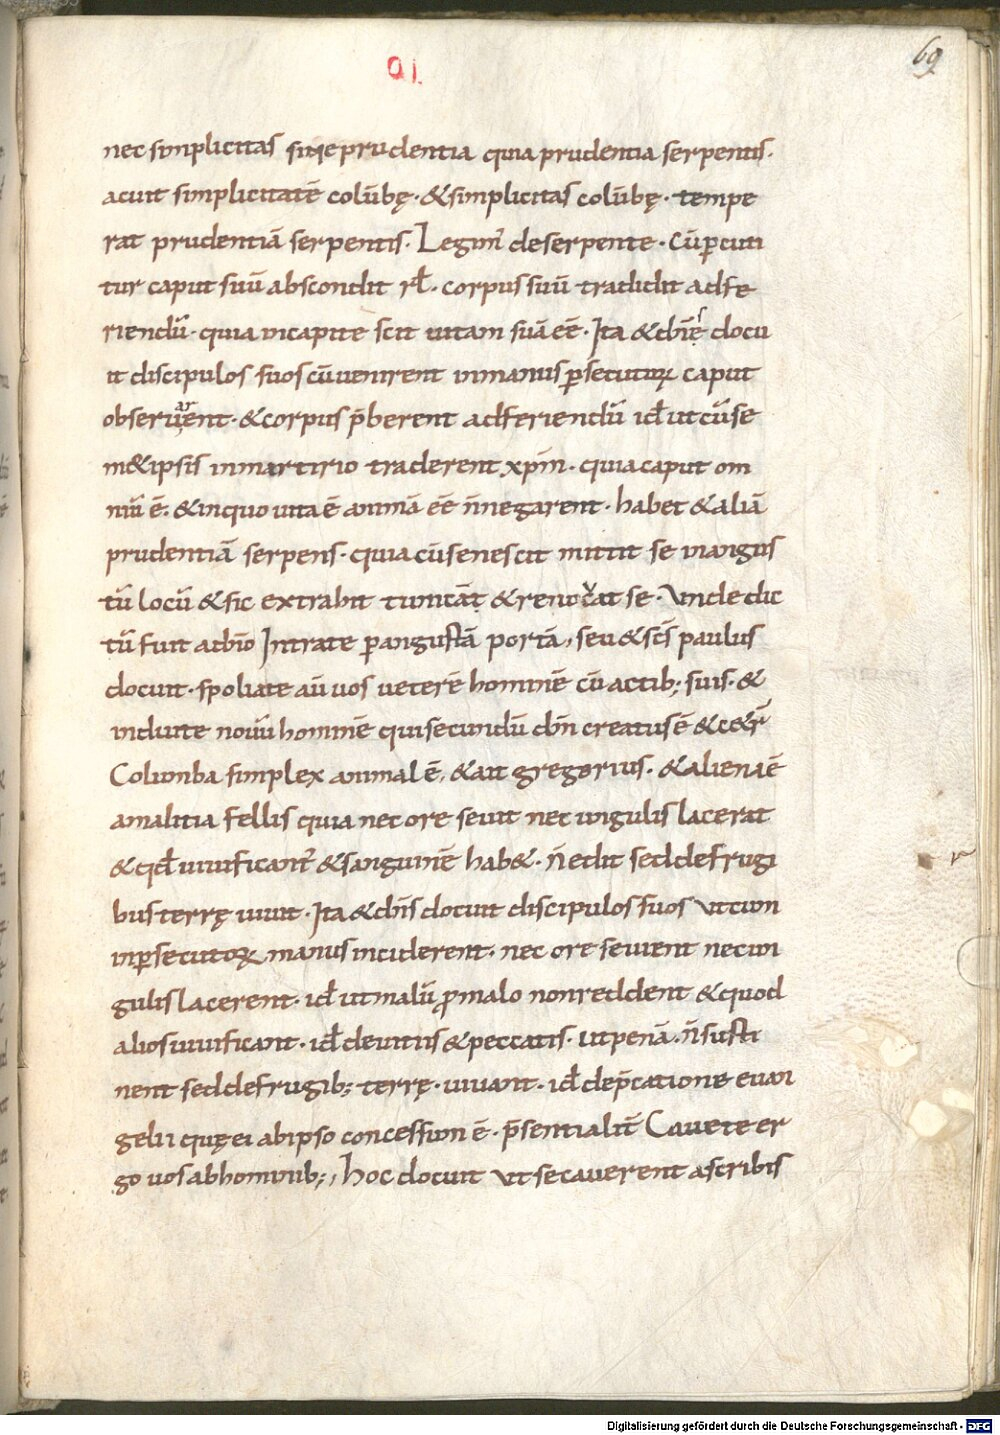 69
nec simplicitas sine prudentia quia prudentia serpentis·
acuit simplicitatē colūbę· & simplicitas colūbę· tempe
rat prudentiā serpentis· Legim̄ de serpente· Cū ꝑcuti
tur caput suū abscondit corpus suū tradidit ad fe
riendū· quia in capite scit uitam suā eē· Ita & docu
it discipulos suos cū uenirent in manus ꝑsecutoꝝ caput
obseruarent· & corpus p̄berent ad feriendū id ut cū se
m&ipsis in martirio traderent xp̄m· quia caput om
niū ē· & in quo uita ē animā eē n̄ negarent· habet & aliā
prudentiā serpens· quia cū senescit mittit se in angus
tū locū & sic extrahit tunicā & renouat se· Unde dic
tū fuit a dn̄o Intrate ꝑ angustā portā, seu & sc̄s paulus
docuit· spoliate uos ueterē hominē cū actib; suis· &
induite nouū hominē qui secundū dm̄ creatus ē & c&r̄
Columba simplex animal ē, & ait gregorius· & aliena ē
a malitia fellis quia nec ore seuit nec ungulis lacerat
& qd̄ uiuificant̄ & sanguinē hab&· n̄ edit sed de frugi
bus terrę uiuit· Ita & dn̄s docuit discipulos suos ut cum
in ꝑsecutoꝝ manus inciderent· nec ore seuient nec un
gulis lacerent· id ut malū ꝓ malo non reddent & quod
alios uiuificant· id de uitiis & peccatis· ut penā· n̄ susti
nent sed de frugib; terrę· uiuant· id de p̄catione euan
gelii quę ei ab ipso concessum ē· p̄sentialit̄ Cauete er
go uos ab hominib;, hoc docuit ut se cauerent a scribis
Digitalisierung gefördert durch die Deutsche Forschungsgemeinschaft - DFG